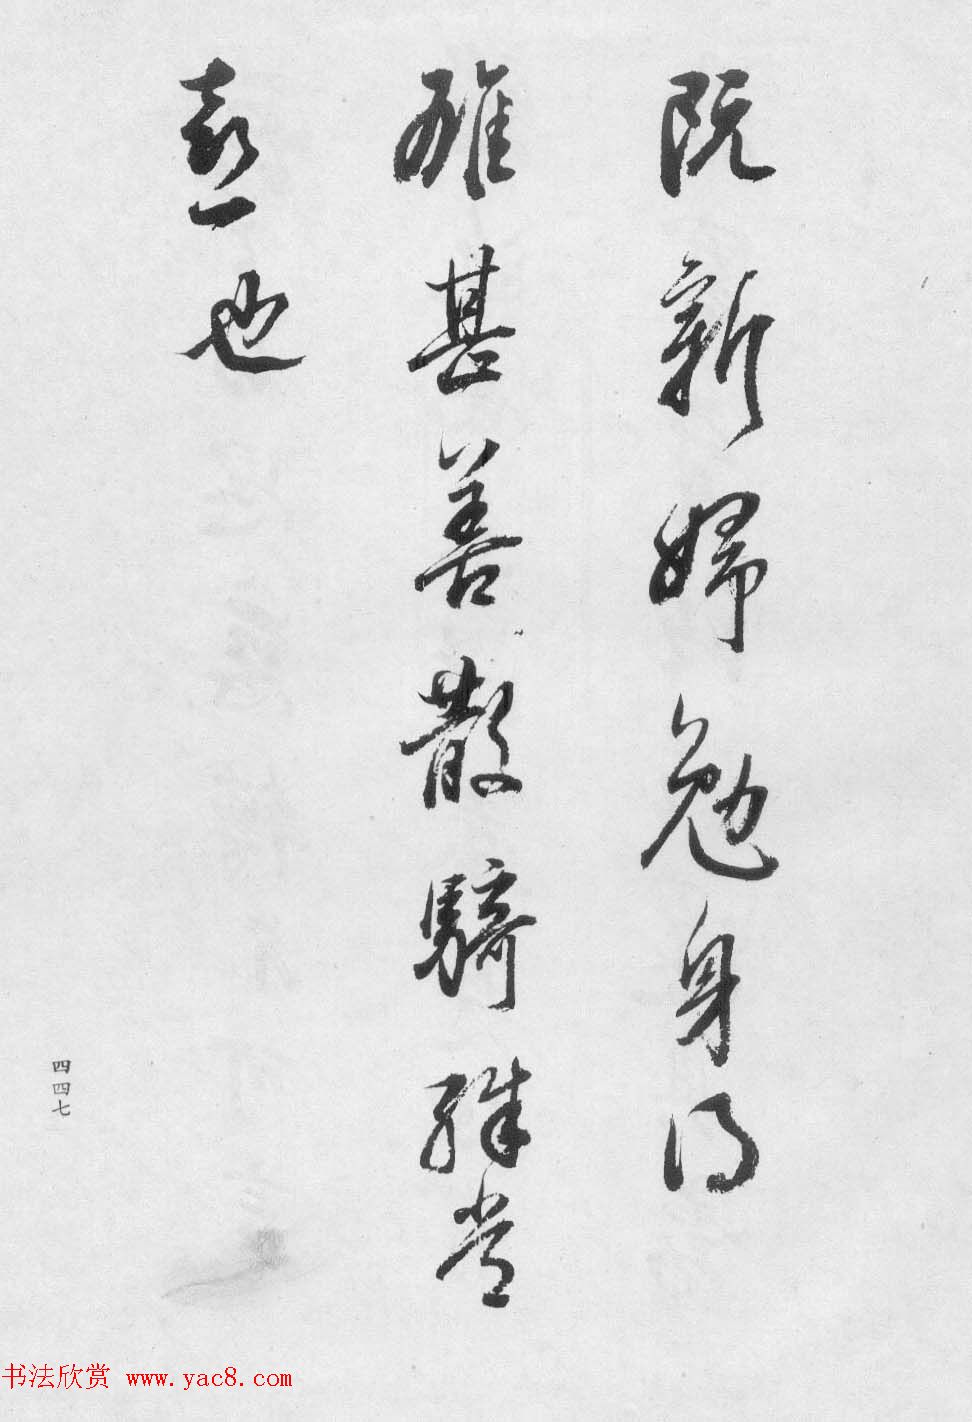 阮新婦勉身得
雄甚善散騎殊當
憙也
四四七
书法欣赏 www.yac8.com